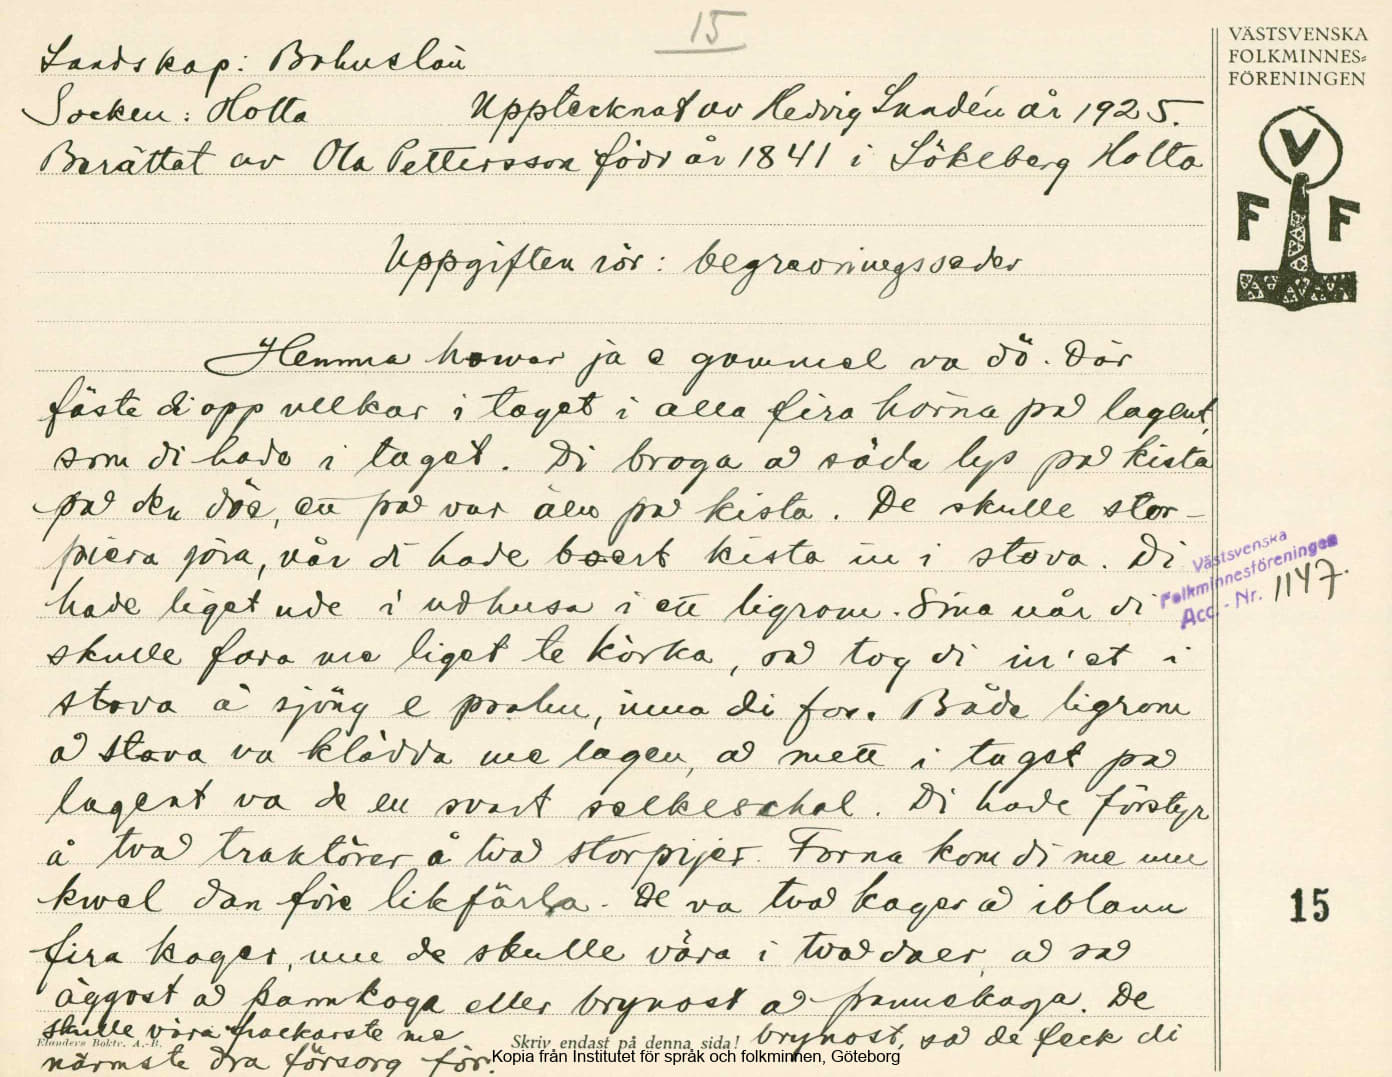 15
VÄSTSVENSKA
FOLKMINNES-
FÖRENINGEN
V
F F
Landskap: Bohuslän
Socken: Holta Upptecknat av Hedvig Lundén år 1925.
Berättat av Ola Pettersson född år 1841 i Lökeberg Holta
Uppgiften rör: begravningsseder
Hemma hwar ja e gammel va dö. Där
fäste di opp ullkar i taget i alla fira hörna på lagent,
som di hade i taget. Di broga å säda lys på kista
på den döe, ett på var ände på kista. De skulle stor-
piera jöra, når di hade boert kista in i stova. Di
hade liget ude i udhusa i ett ligrom. Sina når di
skulle fara me liget te körka, så tog di in'et i
stova å sjöng e psalm, inna di for. Både ligrom
å stova va klädda me lagen, å mett i taget på
lagent va de en svart selkeschal. Di hade förstyr
å två traktörer å två storpijer. Forna kom di me um
kwel dan före likfärla. De va två kager å iblann
fira kager, um de skulle våra i två daer, å så
äggost å pannkoga eller brynost å pannekaga. De
skulle våra packarste me brynost, så de feck di
närmste dra försorg för.
Elanders Boktr. A.-B.
Skriv endast på denna sida!
Västsvenska
Folkminnesföreningen
Acc.-Nr. 1147.
15
Kopia från Institutet för språk och folkminnen, Göteborg